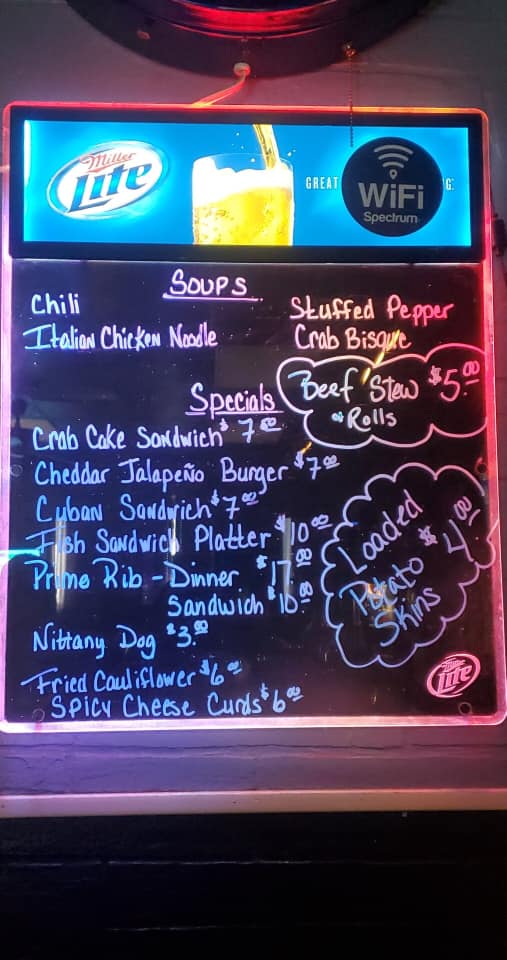 Miller
Lite
GREAT
WiFi
Spectrum
G.
SOUPS
Chili
Stuffed Pepper
Italian Chicken Noodle
Crab Bisque
Beef Stew $5.00
w/ Rolls
Specials
Crab Cake Sandwich $7.00
Cheddar Jalapeño Burger $7.00
Cuban Sandwich $7.00
Fish Sandwich Platter $10.00
Prime Rib - Dinner $17.00
Sandwich $10.00
Loaded
Potato $4.00
Skins
Nittany Dog $3.00
Fried Cauliflower $6.00
Spicy Cheese Curds $6.00
Miller
Lite